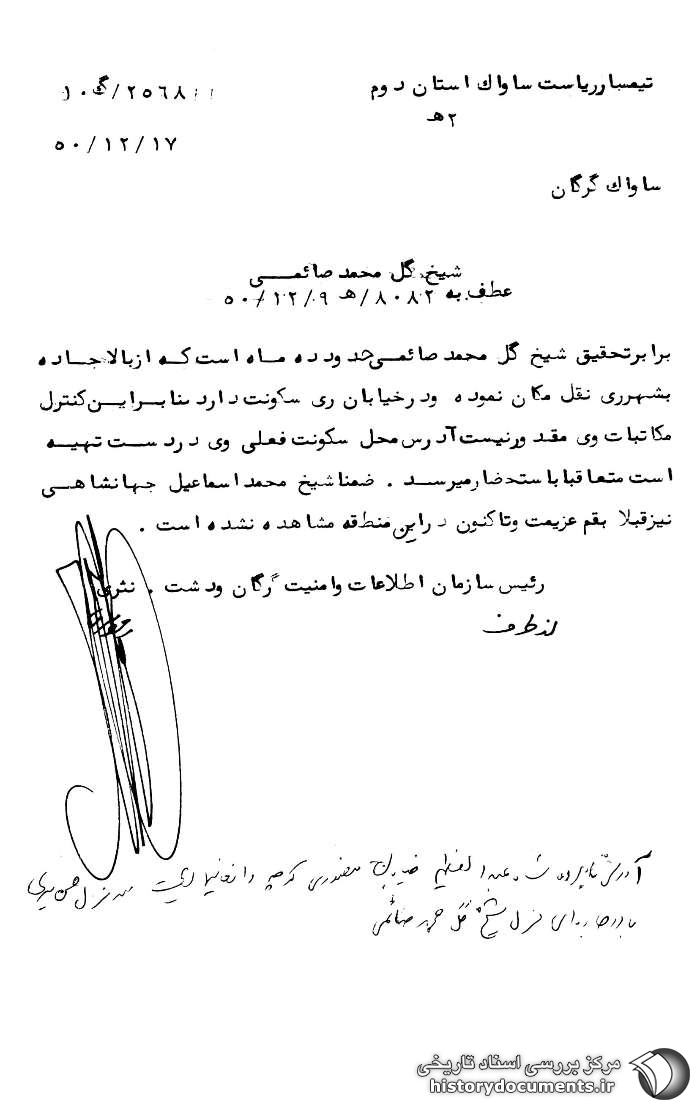 تیمسار ریاست ساواک استان دوم
۲ هـ
۲۵۶۸/ک۱۰
۵۰/۱۲/۱۷
ساواک گرگان
شیخ گل محمد صائمی
عطف به ۸۰۸۲/هـ ۵۰/۱۲/۹
برابر تحقیق شیخ گل محمد صائمی حدود ده ماه است که از بالا جاده
بشهر ری نقل مکان نموده و در خیابان ری سکونت دارد بنابراین کنترل
مکاتبات وی مقدور نیست آدرس محل سکونت فعلی وی در دست تهیه
است متعاقبا باستحضار میرسد . ضمنا شیخ محمد اسماعیل جهانشاهی
نیز قبلا بقم عزیمت و تاکنون در این منطقه مشاهده نشده است .
رئیس سازمان اطلاعات و امنیت گرگان و دشت . نثری
از طرف
آدرس نامبرده
منزل شیخ گل محمد صائمی
مرکز بررسی اسناد تاریخی
historydocuments.ir